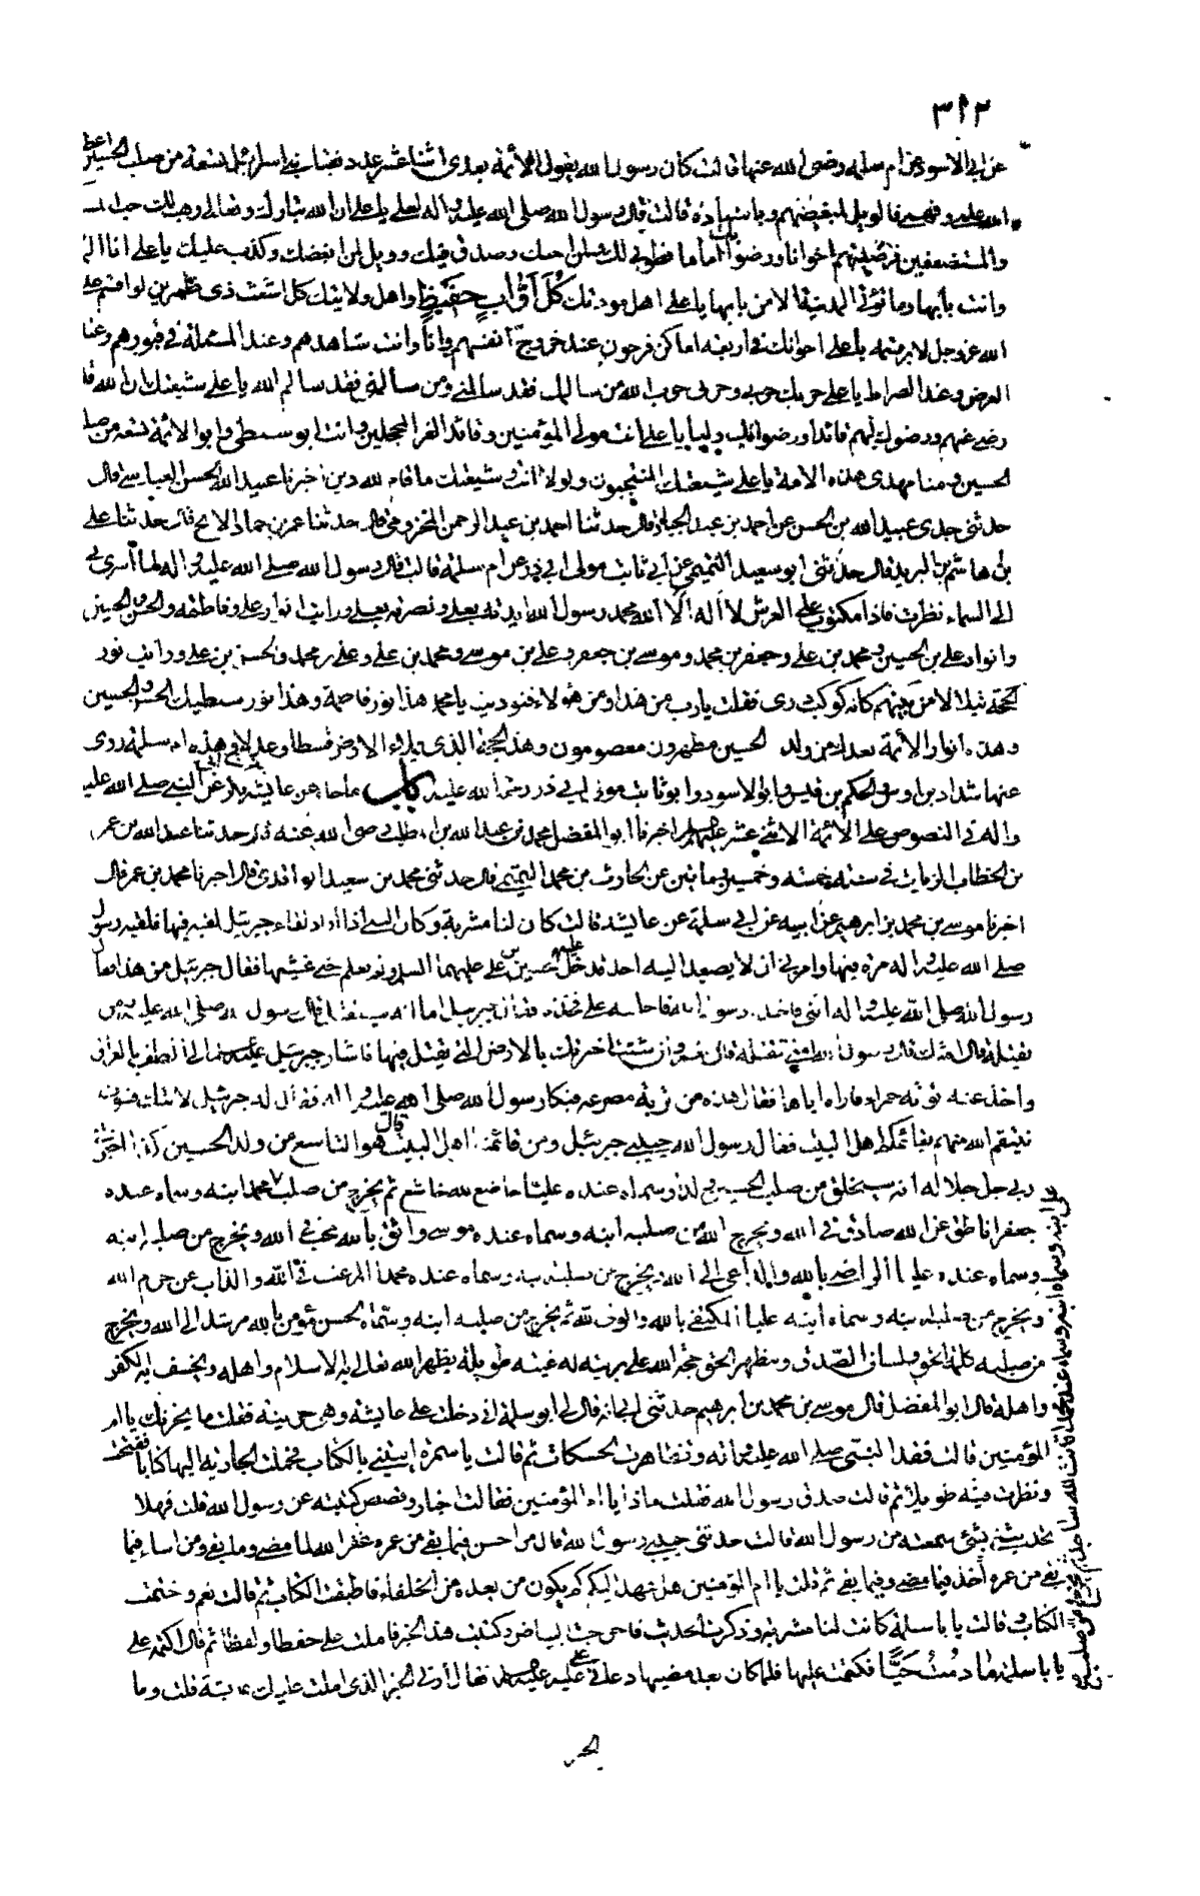 ٣١٢
عن ابي الاسود عن ام سلمه رضي الله عنها قالت كان رسول الله يقول الأئمة بعدي اثنا عشر عدد نقباء بني اسرائيل تسعة من صلب الحسين اعطاهم
الله علمي وفهمي فالويل لمبغضيهم وباسناده قالت قال رسول الله صلى الله عليه واله لعلي يا علي ان الله تبارك وتعالى وهب لك حب المساكين
والمستضعفين فرضيتهم اخوانا ورضوا بك اماما فطوبى لك ولمن احبك وصدق فيك وويل لمن ابغضك وكذب عليك يا علي انا المدينة
وانت بابها وما تؤتى المدينة الا من بابها يا علي اهل مودتك كل اواب حفيظ واهل ولايتك كل اشعث ذي طمرين لو اقسم على
الله عز وجل لابر قسمه يا علي اخوانك في اربعة اماكن فرحون عند خروج انفسهم وانا وانت شاهدهم وعند المسئلة في قبورهم وعند
العرض وعند الصراط يا علي حربك حربي وحربي حرب الله من سالمك فقد سالمني ومن سالمني فقد سالم الله يا علي شيعتك ان الله قد
رضي عنهم ورضوك لهم قائدا ورضوا بك وليا يا علي انت مولى المؤمنين وقائد الغر المحجلين وانت ابو سبطي وابو الائمة تسعة من صلب
الحسين ومنا مهدي هذه الامة يا علي شيعتك المنتجبون ولولا انت وشيعتك ما قام لله دين اخبرنا عبيد الله الحسن العياشي قال
حدثني جدي عبيد الله بن الحسن عن احمد بن عبد الجبار قال حدثنا احمد بن عبد الرحمن المخزومي قال حدثنا عمر بن حماد الابح قال حدثنا علي
بن هاشم بن البريد قال حدثني ابو سعيد التميمي عن ابي ثابت مولى ابي ذر عن ام سلمة قالت قال رسول الله صلى الله عليه واله لما اسري بي
الى السماء نظرت فاذا مكتوب على العرش لا اله الا الله محمد رسول الله ايدته بعلي ونصرته بعلي ورايت انوار علي وفاطمه والحسن والحسين
وانوار علي بن الحسين ومحمد بن علي وجعفر بن محمد وموسى بن جعفر وعلي بن موسى ومحمد بن علي وعلي بن محمد والحسن بن علي ورايت نور
الحجة يتلألأ من بينهم كانه كوكب دري فقلت يا رب من هذا ومن هؤلاء فنوديت يا محمد هذا نور فاطمة وهذا نور سبطيك الحسن والحسين
وهذه انوار الأئمة بعدك من ولد الحسين مطهرون معصومون وهذا الحجة الذي يملاء الارض قسطا وعدلا وهذه ام سلمة روى
عنها شداد بن اوس والحكم بن قيس وابو الاسود وابو ثابت مولى ابي ذر رحمة الله عليه باب ما جاء عن عايشه بنت ابي بكر عن النبي صلى الله عليه
واله في النصوص على الأئمة الاثني عشر اخبرنا ابو المفضل محمد بن عبد الله بن المطلب رضي الله عنه قال حدثنا عبد الله بن عمر
بن الخطاب الزيات في سنة خمسة وخمسين ومائتين عن الحارث بن محمد التميمي قال حدثني محمد بن سعيد الواقدي قال اخبرنا محمد بن عمر قال
اخبرنا موسى بن محمد بن ابرهيم عن ابيه عن ابي سلمة عن عايشة قالت كان لنا مشربة وكان النبي اذا اراد لقاء جبرئيل لقيه فيها فلقيه رسول
صلى الله عليه واله مرة فيها وامرني ان لا يصعد اليه احد فدخل عليه حسين بن علي عليهما السلام ولم نعلم حتى غشيها فقال جبرئيل من هذا فقال
رسول الله صلى الله عليه واله ابني فاخذه رسول الله فاجلسه على فخذه فقال جبرئيل اما انه سيقتل قال رسول الله صلى الله عليه ومن
يقتله قال امتك قال رسول الله امتي تقتله قال نعم وان شئت اخبرتك بالارض التي يقتل فيها فاشار جبرئيل الى الطف بالعراق
واخذ عنه تربة حمراء فاراه اياها فقال هذه من تربة مصرعه فبكا رسول الله صلى الله عليه واله فقال له جبرئيل لا تبك فسوف
ينتقم الله منهم بقائمكم اهل البيت فقال رسول الله حبيبي جبرئيل ومن قائمنا اهل البيت قال هو التاسع من ولد الحسين كذا اخبرني
ربي جل جلاله انه سيخلق من صلب الحسين ولدا وسماه عنده عليا خاضع لله خاشع ثم يخرج من صلب علي محمدا ابنه وسماه عنده
جعفرا ناطق عن الله صادق في الله ويخرج الله من صلبه ابنه وسماه عنده موسى واثق بالله محب في الله ويخرج من صلبه ابنه
وسماه عنده عليا الراضي بالله والداعي الى الله ويخرج من صلبه ابنه وسماه عنده محمدا المرغب في الله والذاب عن حرم الله
ويخرج من صلبه ابنه وسماه ابنه عليا المكتفي بالله والولي لله ثم يخرج من صلبه ابنه وسماه الحسن مؤمن بالله مرشد الى الله ويخرج
من صلبه كلمة الحق ولسان الصدق ومظهر الحق حجة الله على بريته له غيبة طويلة يظهر الله تعالى به الاسلام واهله ويخسف به الكفر
واهله قال ابو المفضل قال موسى بن محمد بن ابرهيم حدثني ابي انه قال لي ابو سلمة اني دخلت على عايشة وهي حزينة فقلت ما يحزنك يا ام
المؤمنين قالت فقد النبي صلى الله عليه واله وتظاهرت الحسكات ثم قالت يا سمرة ايتيني بالكتاب فحملت الجارية اليها كتابا ففتحت
ونظرت فيه طويلا ثم قالت صدق رسول الله فقلت ماذا يا ام المؤمنين فقالت اخبار وقصص كتبته عن رسول الله قلت فهلا
تحدثيني بشيء سمعته من رسول الله قالت حدثني حبيبي رسول الله قال من احسن فيما بقي من عمره غفر الله لما مضى وما بقي ومن اساء فيما
بقي من عمره اخذ فيما مضى وفيما بقي ثم قلت يا ام المؤمنين هل عهد اليكم كم يكون من بعده من الخلفاء فاطبقت الكتاب ثم قالت نعم وختمت
الكتاب وقالت يا با سلمة كانت لنا مشربة وذكرت الحديث فاخرجت البياض وكتبت هذا الخبر فاملت علي حفظا ولفظا ثم قال اكتمه علي
يا با سلمة ما دمت حيا فكتمت عليها فلما كان بعد مضيها دعاني علي عليه السلام فقال ارني الخبر الذي املت عليك عايشة قلت وما
الخبر